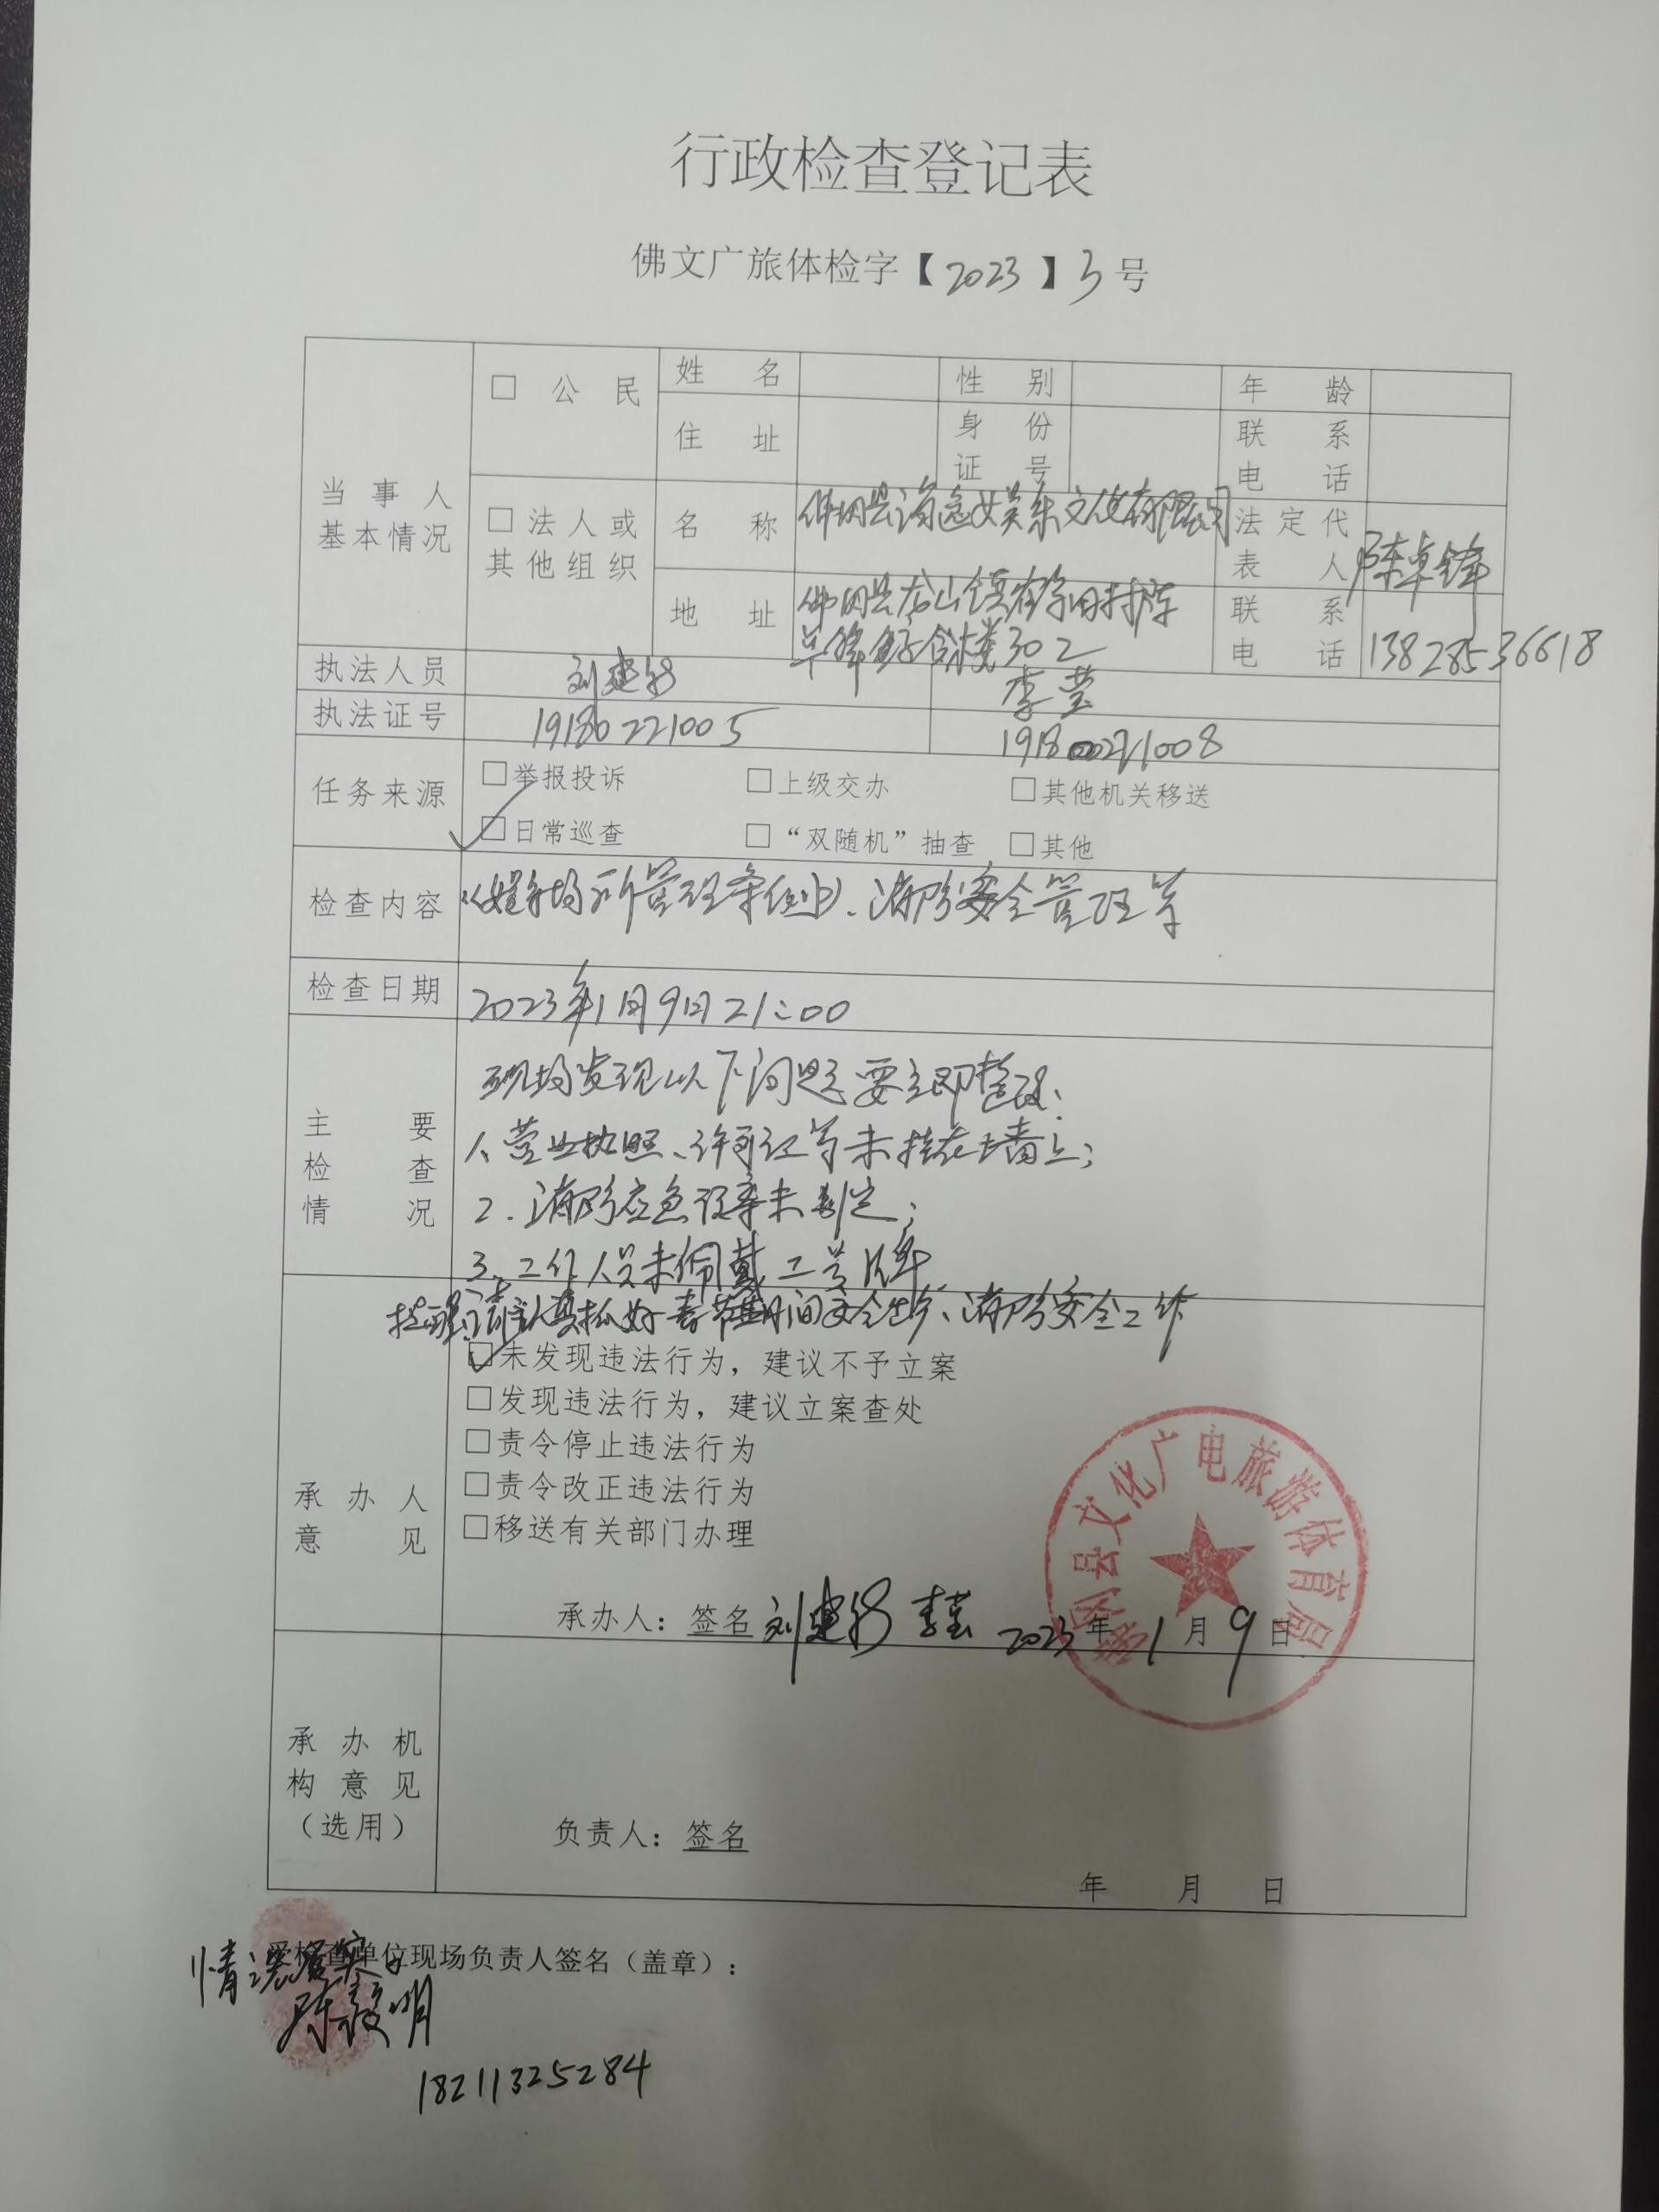 行政检查登记表
佛文广旅体检字【2023】3号
当事人基本情况
□ 公民
姓名
性别
年龄
住址
身份证号
联系电话
□ 法人或其他组织
名称
佛冈县 娱乐文化有限公司
法定代表人
陈卓锋
地址
佛冈县龙山镇 田村陈
卓锋 合楼302
联系电话
13828536618
执法人员
刘建
李莹
执法证号
19180221005
1918 221008
任务来源
□举报投诉 □上级交办 □其他机关移送
□日常巡查 □“双随机”抽查 □其他
检查内容
《娱乐场所管理条例》、消防安全管理等
检查日期
2023年1月9日21:00
主要检查情况
现场发现以下问题要立即整改:
1、营业执照、许可证等未挂在墙上;
2.消防应急预案未制定;
3、工作人员未佩戴工号牌
提醒: 认真抓好春节期间安全生产、消防安全工作
承办人意见
□未发现违法行为，建议不予立案
□发现违法行为，建议立案查处
□责令停止违法行为
□责令改正违法行为
□移送有关部门办理
承办人：签名 刘建 李莹 2023年1月9日
佛冈县文化广电旅游体育局
承办机构意见（选用）
负责人：签名
年 月 日
受检查单位现场负责人签名（盖章）：
情况属实
陈 明
18211325284